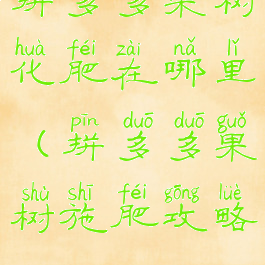 拼多多果树
huà féi zài nǎ lǐ
化肥在哪里
pīn duō duō guǒ
（拼多多果
shù shī féi gōng lüè
树施肥攻略